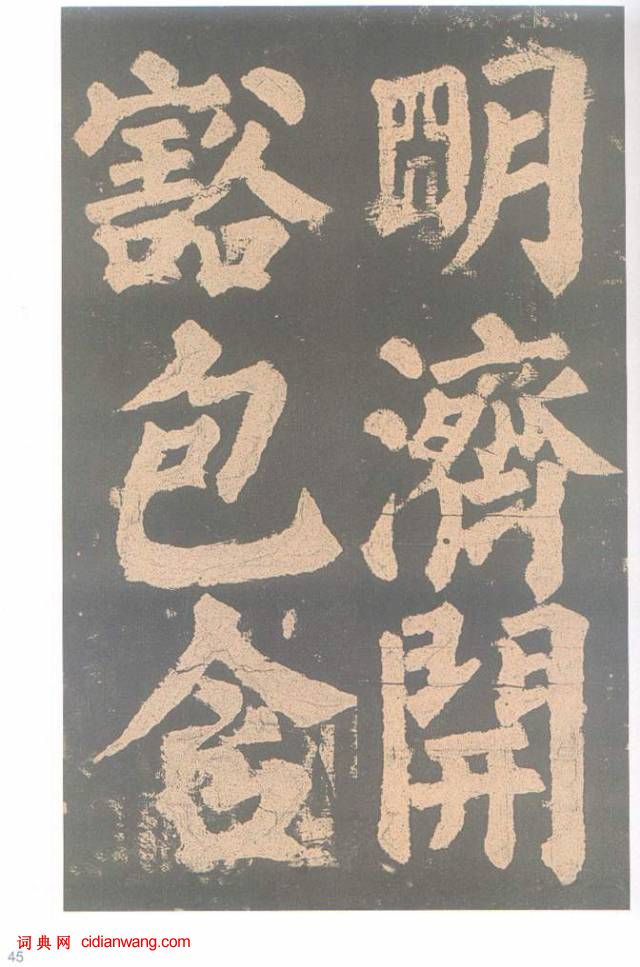 明濟開
豁包含
词典网 cidianwang.com
45